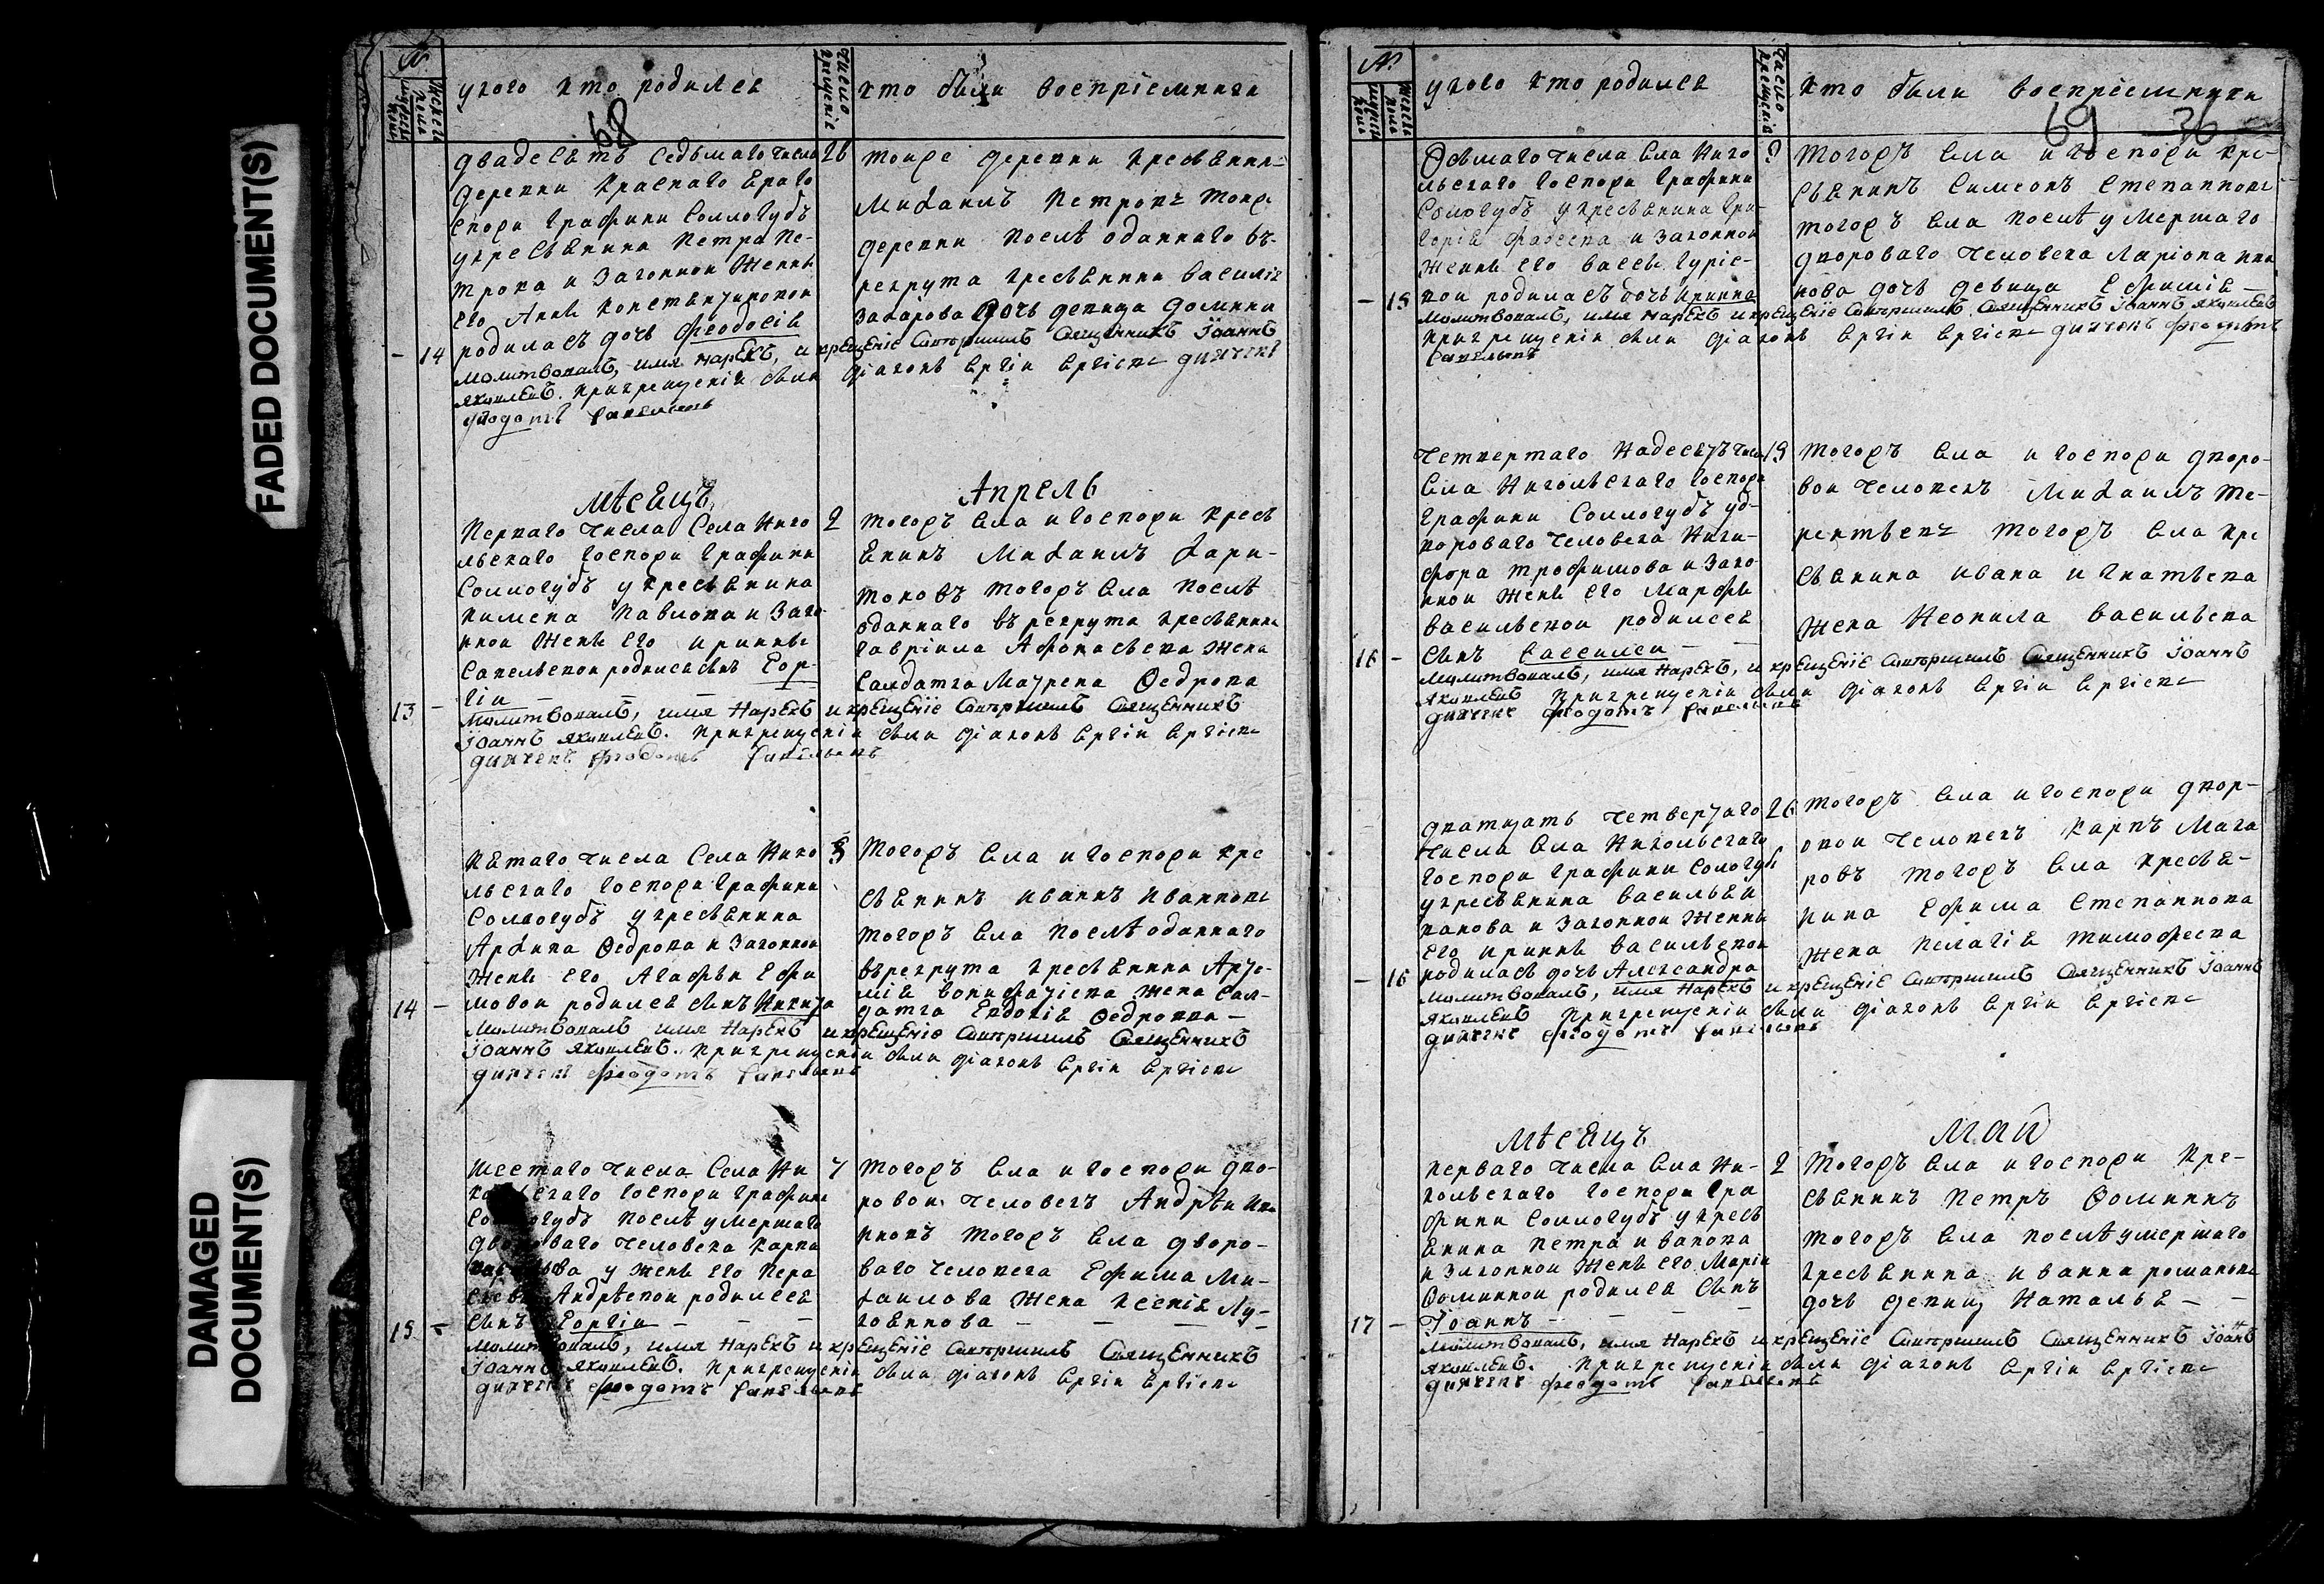 FADED DOCUMENT(S)
DAMAGED DOCUMENT(S)
№
мужеска полу
женска полу
у кого кто родился
число крещения
кто были восприемники
68
двадесять седьмаго числа
деревни Краснаго Враго
спожи графини Соллогубъ
у кресьянина Петра Пе-
трова и законнои женны
его Анны Константиновои
14 родилась дочь Феодосія
28 тоиже деревни кресьянинъ
Михаилъ Петровъ тоиже
деревни послѣ оданнаго въ-
рекрута кресьянина Василія
Захарова дочь девица Домника
молитвовалъ, имя нарекъ, и крещеніе совершилъ Священникъ Іоаннъ
Яковлевъ. При крещеніи были діаконъ Ергіи Ергіевъ дьячекъ
Феодотъ Савельевъ
мѣсяцъ Апрель
Перваго числа Села Нико
льскаго госпожи графини
Соллогубъ у кресьянина
Пимена Павлова и зако
ннои жены его Иринны
Савельевои родился сынъ Еор-
13 - гіи
2 тогожъ села и госпожи кресь
янинъ Михаилъ Хари-
тоновъ тогожъ села послѣ
оданнаго въ рекрута кресьянина
Гавріила Афонасьева жена
салдатка Мавренa Ѳедрова
молитвовалъ, имя нарекъ и крещеніе совершилъ Священникъ
Іоаннъ Яковлевъ. При крещеніи были діаконъ Ергіи Ергіевъ
дьячекъ Феодотъ Савельевъ
Пятаго числа Села Нико
льскаго госпожи графини
Соллогубъ у кресьянина
Архипа Ѳедрова и законнои
жены его Агафьи Ефи
14 - мовои родился сынъ Никита
5 тогожъ села и госпожи кре
сьянинъ Иваннъ Иванновъ
тогожъ села послѣ оданнаго
въ рекрута кресьянина Арте-
мія Вонифатіева жена сал-
датка Евдокія Ѳедровна
молитвовалъ имя нарекъ и крещеніе совершилъ Священникъ
Іоаннъ Яковлевъ. При крещеніи были діаконъ Ергіи Ергіевъ
дьячекъ Феодотъ Савельевъ
шестаго числа Села Ни
кольскаго госпожи графини
Соллогубъ послѣ умершаго
двороваго человека Карпа
у жены его Пера
Андрѣевои родился
15 - сынъ Еоргіи
7 тогожъ села и госпожи дво-
ровои человекъ Андрѣи
тогожъ села дворо-
ваго человека Ефима Ми-
хаилова жена Ксенія Лу-
кояннова
молитвовалъ, имя нарекъ и крещеніе совершилъ Священникъ
Іоаннъ Яковлевъ. При крещеніи были діаконъ Ергіи Ергіевъ
дьячекъ Феодотъ Савельевъ
№
мужеска полу
женска полу
у кого кто родился
число крещения
кто были восприемники
69 36
Осьмаго числа села Нико
льскаго госпожи графини
Соллогубъ у кресьянина Гри-
горія Фадеева и законнои
женны его Вассы Гуріе-
- 15 вои родилась дочь Иринна
9 тогожъ села и госпожи кре-
сьянинъ Симеонъ Степанновъ
тогожъ села послѣ умершаго
двороваго человека Ларіона
нова дочь девица Ефимія
молитвовалъ, имя нарекъ и крещеніе совершилъ Священникъ Іоаннъ Яковлевъ
При крещеніи были діаконъ Ергіи Ергіевъ дьячекъ Феодотъ
Савельевъ
Четвертаго надесять числа
села Никольскаго госпожи
графини Соллогубъ у д-
вороваго человека Ники-
фора Трофимова и зако
ннои жены его Марфы
Васильевои родился
16 - сынъ Василеи
15 тогожъ села и госпожи дворо-
вои человекъ Михаилъ Те-
рентьевъ тогожъ села кре
сьянина Ивана Игнатьева
жена Неонила Васильева
молитвовалъ, имя нарекъ, и крещеніе совершилъ Священникъ Іоаннъ
Яковлевъ При крещеніи были діаконъ Ергіи Ергіевъ
дьячекъ Феодотъ Савельевъ
дватцать четвертаго
числа села Никольскаго
госпожи графини Сологубъ
у кресьянина Василья И
ванова и законнои женны
его Иринны Васильевои
- 16 родилась дочь Александра
26 тогожъ села и госпожи двор-
овои человекъ Карпъ Мака
ровъ тогожъ села кресья-
нина Ефима Степаннова
жена Пелагія Тимофеева
молитвовалъ, имя нарекъ и крещеніе совершилъ Священникъ Іоаннъ
Яковлевъ При крещеніи были діаконъ Ергіи Ергіевъ
дьячекъ Феодотъ Савельевъ
мѣсяцъ маи
Перваго числа села Ни-
кольскаго госпожи гра
фини Соллогубъ у кресь
янина Петра Иванова
и законнои жены его Маріи
Ѳоминнои родился сынъ
17 - Іоаннъ
2 тогожъ села и госпожи кре-
сьянинъ Петръ Ѳоминнъ
тогожъ села послѣ умершаго
кресьянина Иванна Романова
дочь девица Наталья
молитвовалъ, имя нарекъ и крещеніе совершилъ Священникъ Іоаннъ
Яковлевъ. При крещеніи были діаконъ Ергіи Ергіевъ
дьячекъ Феодотъ Савельевъ